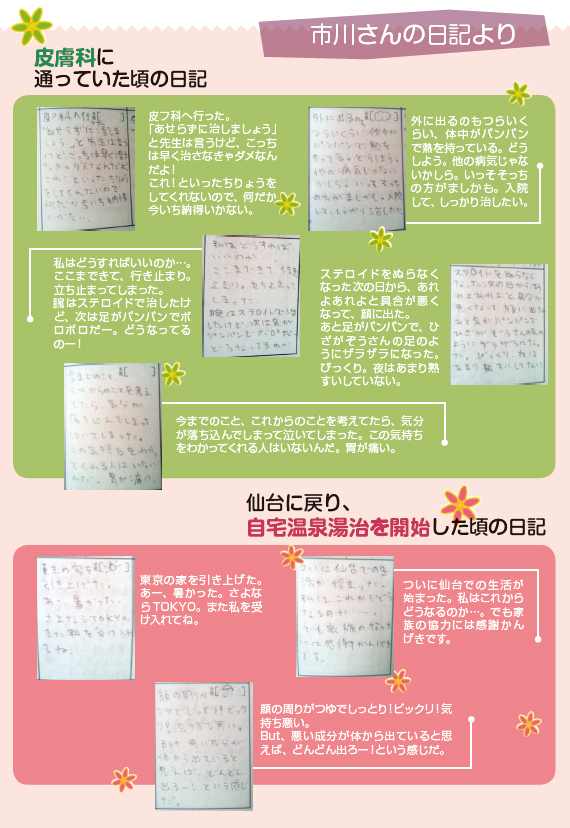 市川さんの日記より
皮膚科に
通っていた頃の日記
皮フ科へ行った。
「あせらずに治しましょう」
と先生は言うけど、こっち
は早く治さなきゃダメなん
だよ！
これ！といったちりょうを
してくれないので、何だか
今いち納得いかない。
外に出るのもつらいく
らい、体中がパンパン
で熱を持っている。どう
しよう。他の病気じゃな
いかしら。いっそそっち
の方がましかも。入院
して、しっかり治したい。
私はどうすればいいのか…。
ここまできて、行き止まり。
立ち止まってしまった。
腕はステロイドで治したけ
ど、次は足がパンパンでボ
ロボロだー。どうなってる
のー！
ステロイドをぬらなく
なった次の日から、あれ
よあれよと具合が悪く
なって、顔に出た。
あと足がパンパンで、ひ
ざがぞうさんの足のよ
うにザラザラになった。
びっくり。夜はあまり熟
すいしていない。
今までのこと、これからのことを考えてたら、気分
が落ち込んでしまって泣いてしまった。この気持ち
をわかってくれる人はいないんだ。胃が痛い。
仙台に戻り、
自宅温泉湯治を開始した頃の日記
東京の家を引き上げた。
あー、暑かった。さよな
らTOKYO。また私を受
け入れてね。
ついに仙台での生活が
始まった。私はこれから
どうなるのか…。でも家
族の協力には感謝かん
げきです。
顔の周りがつゆでしっとり！ビックリ！気
持ち悪い。
But、悪い成分が体から出ていると思
えば、どんどん出ろー！という感じだ。